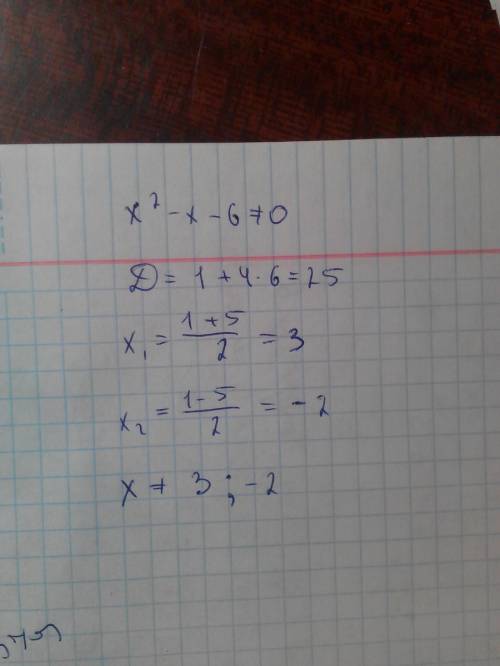 x² - x - 6 ≠ 0
D = 1 + 4 · 6 = 25
x₁ = (1 + 5)/2 = 3
x₂ = (1 - 5)/2 = -2
x ≠ 3 ; -2